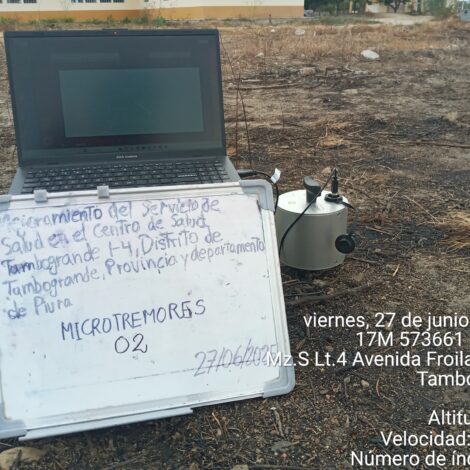 ASUS Vivobook
Mejoramiento del Servicio de
Salud en el Centro de Salud
Tambogrande I-4, Distrito de
Tambogrande, Provincia y departamento
de Piura
MICROTREMORES
02
27/06/2025
viernes, 27 de junio
17M 573661
Mz.S Lt.4 Avenida Froila
Tambo
Altitu
Velocidad:
Número de índ